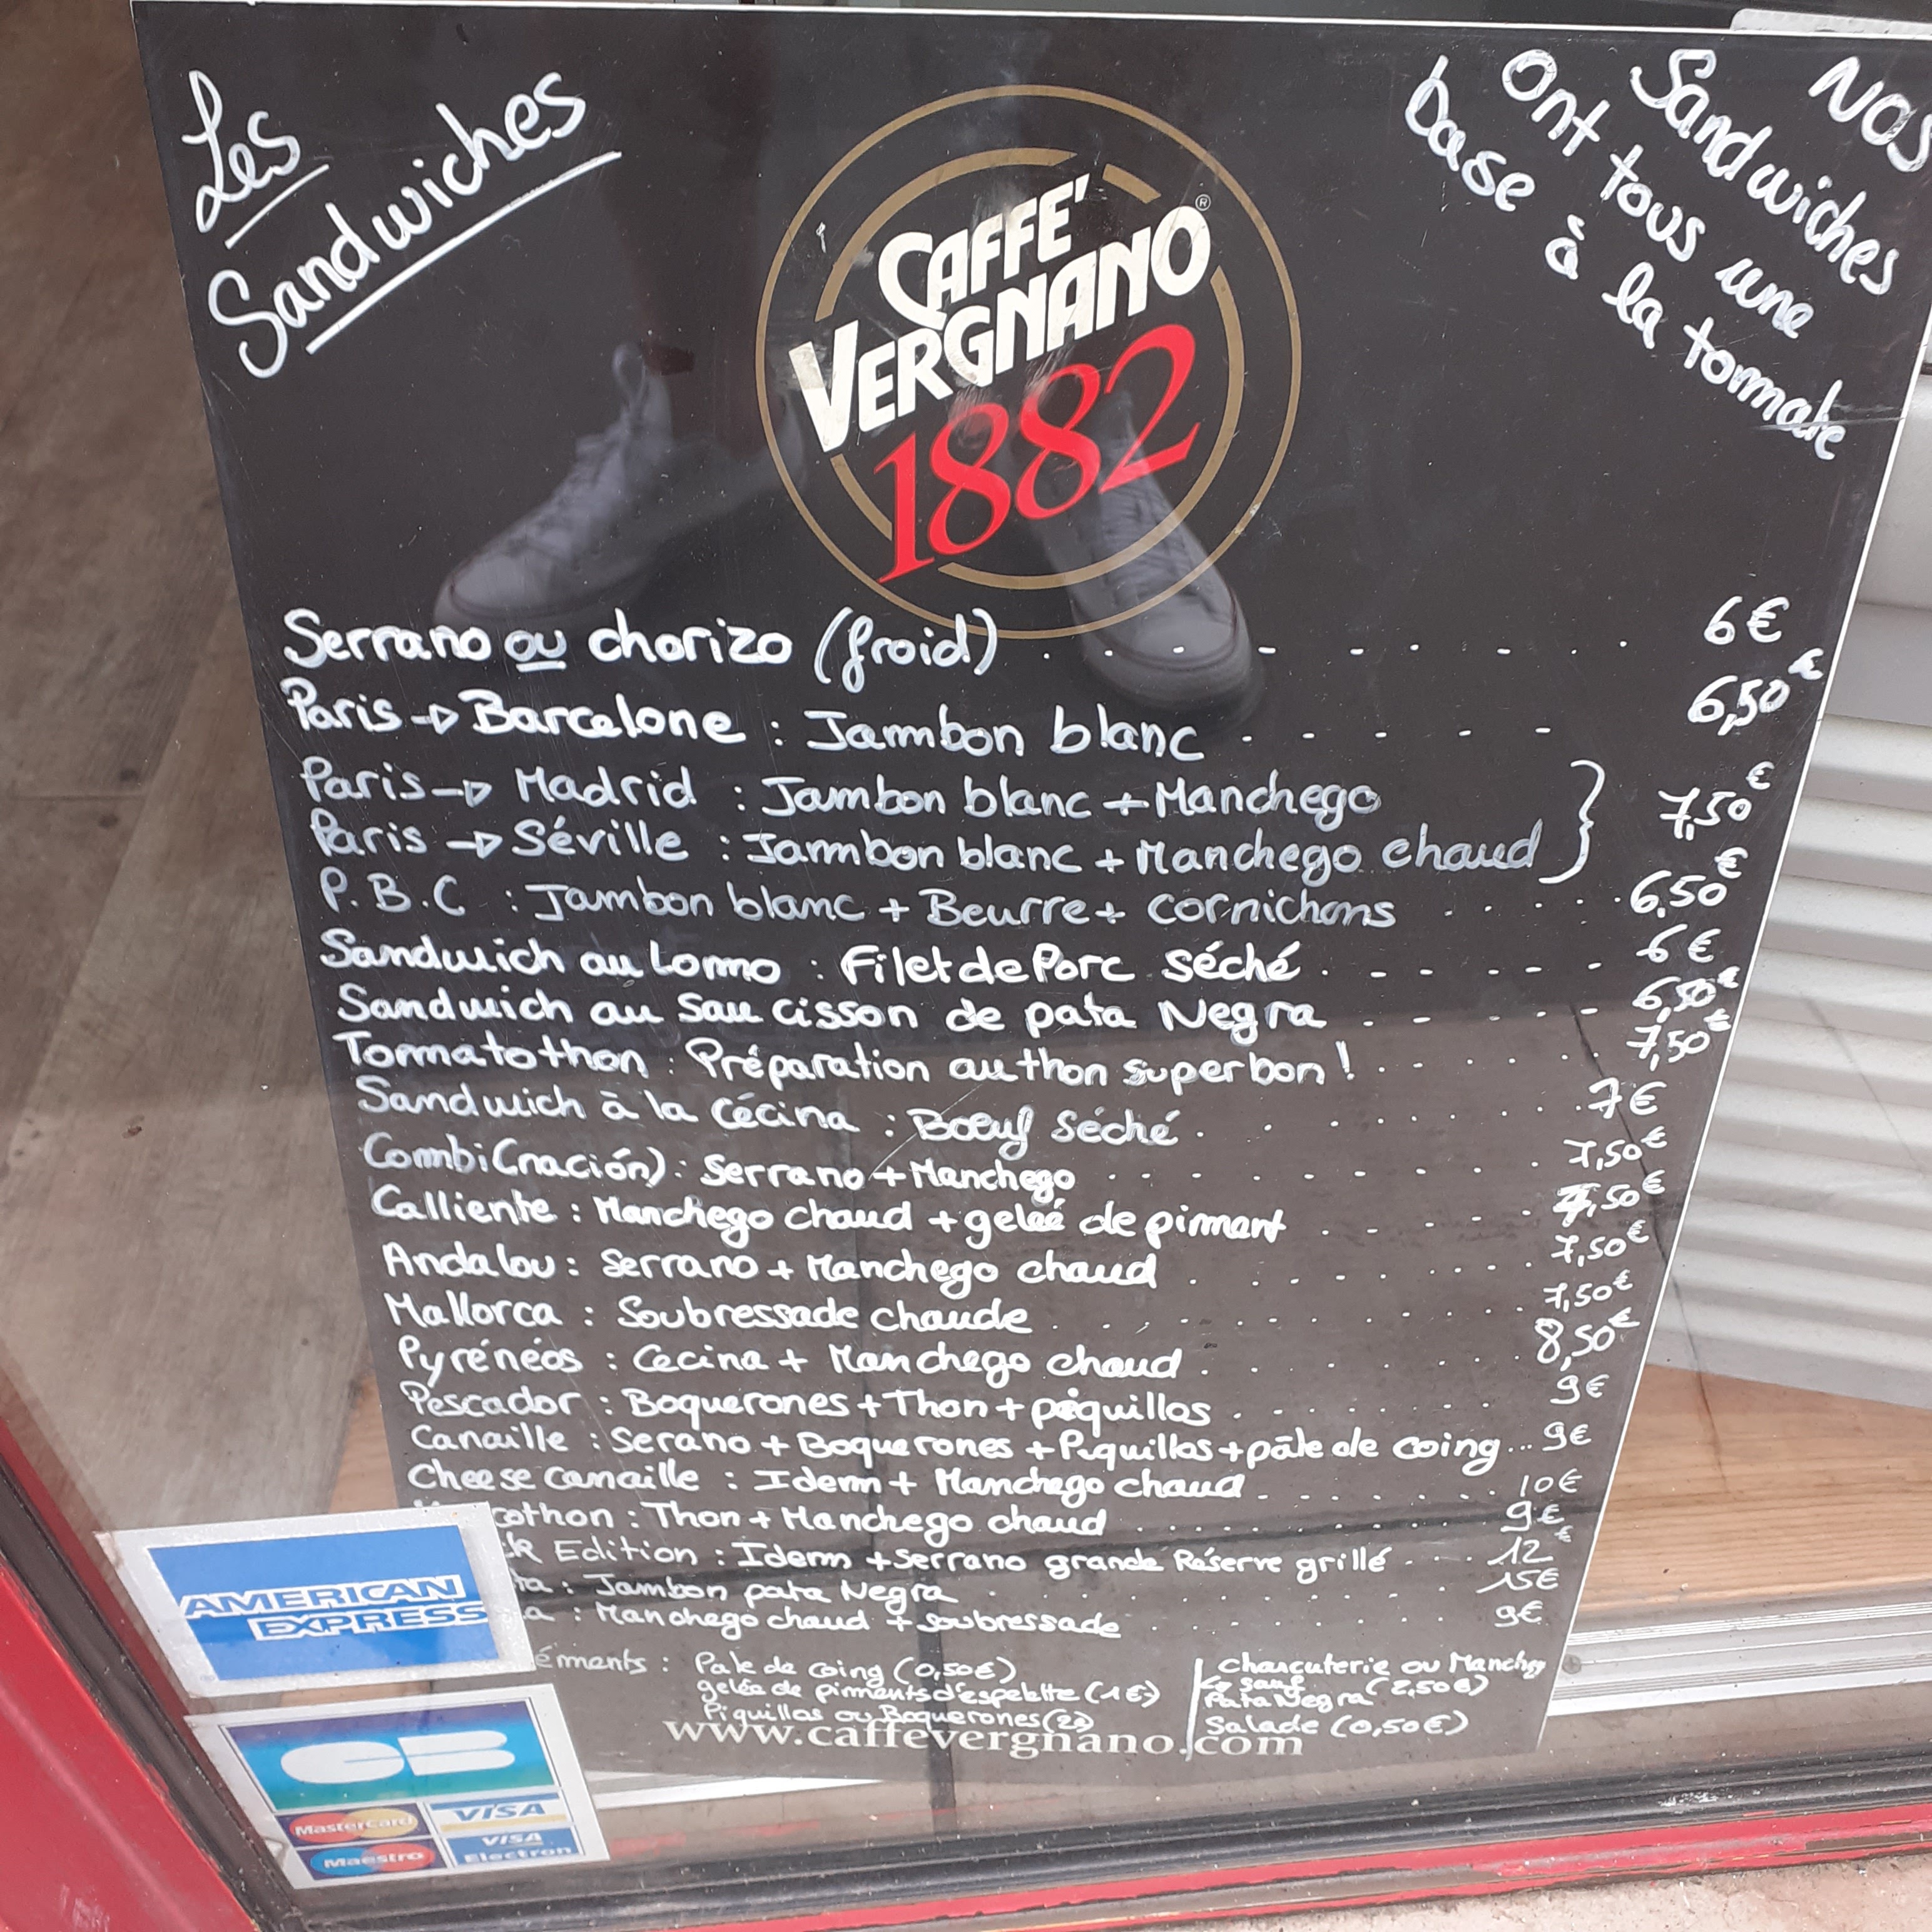 Les
Sandwiches
Nos
Sandwiches
Ont tous une
base à la tomate
CAFFE'
VERGNANO®
1882
Serrano ou chorizo (froid) . . - - - - . . 6€
Paris → Barcelone : Jambon blanc . - - - - 6,50€
Paris → Madrid : Jambon blanc + Manchego
Paris → Séville : Jambon blanc + Manchego chaud } 7,50€
P.B.C : Jambon blanc + Beurre + cornichons . . . . . 6,50€
Sandwich au Lomo : Filet de Porc séché . - - - - - 6€
Sandwich au Saucisson de pata Negra . - - . - - 6,50€
Tomatothon : Préparation au thon super bon ! . . . . . . 7,50€
Sandwich à la Cécina : Bœuf séché . . . . . . . . 7€
Combi(nación) : Serrano + Manchego . . . . . . . . 7,50€
Calliente : Manchego chaud + geleé de pimant . . . . . 7,50€
Andalou : Serrano + Manchego chaud . . . . . . . 7,50€
Mallorca : Soubressade chaude . . . . . . . . . 7,50€
Pyrénéos : Cecina + Manchego chaud . . . . . . . 8,50€
Pescador : Boquerones + Thon + piquillos . . . . . . . 9€
Canaille : Serano + Boquerones + Piquillos + pâte de coing ... 9€
Cheese canaille : Idem + Manchego chaud . . . . . . . 10€
cothon : Thon + Manchego chaud . . . . . . . . . 9€
ck Edition : Idem + Serrano grande Réserve grillé . . . . 12€
ta : Jambon pata Negra . . . . . . . . . . 15€
a : Manchego chaud + soubressade . . . . . . . . 9€
éments : Pate de coing (0,50€)
gelée de piments d'espelette (1€)
Piquillos ou Boquerones (2€)
Charcuterie ou Manchego
sauf
Pata Negra (2,50€)
Salade (0,50€)
www.caffevergnano.com
AMERICAN
EXPRESS
CB
MasterCard
VISA
Maestro
VISA
Electron